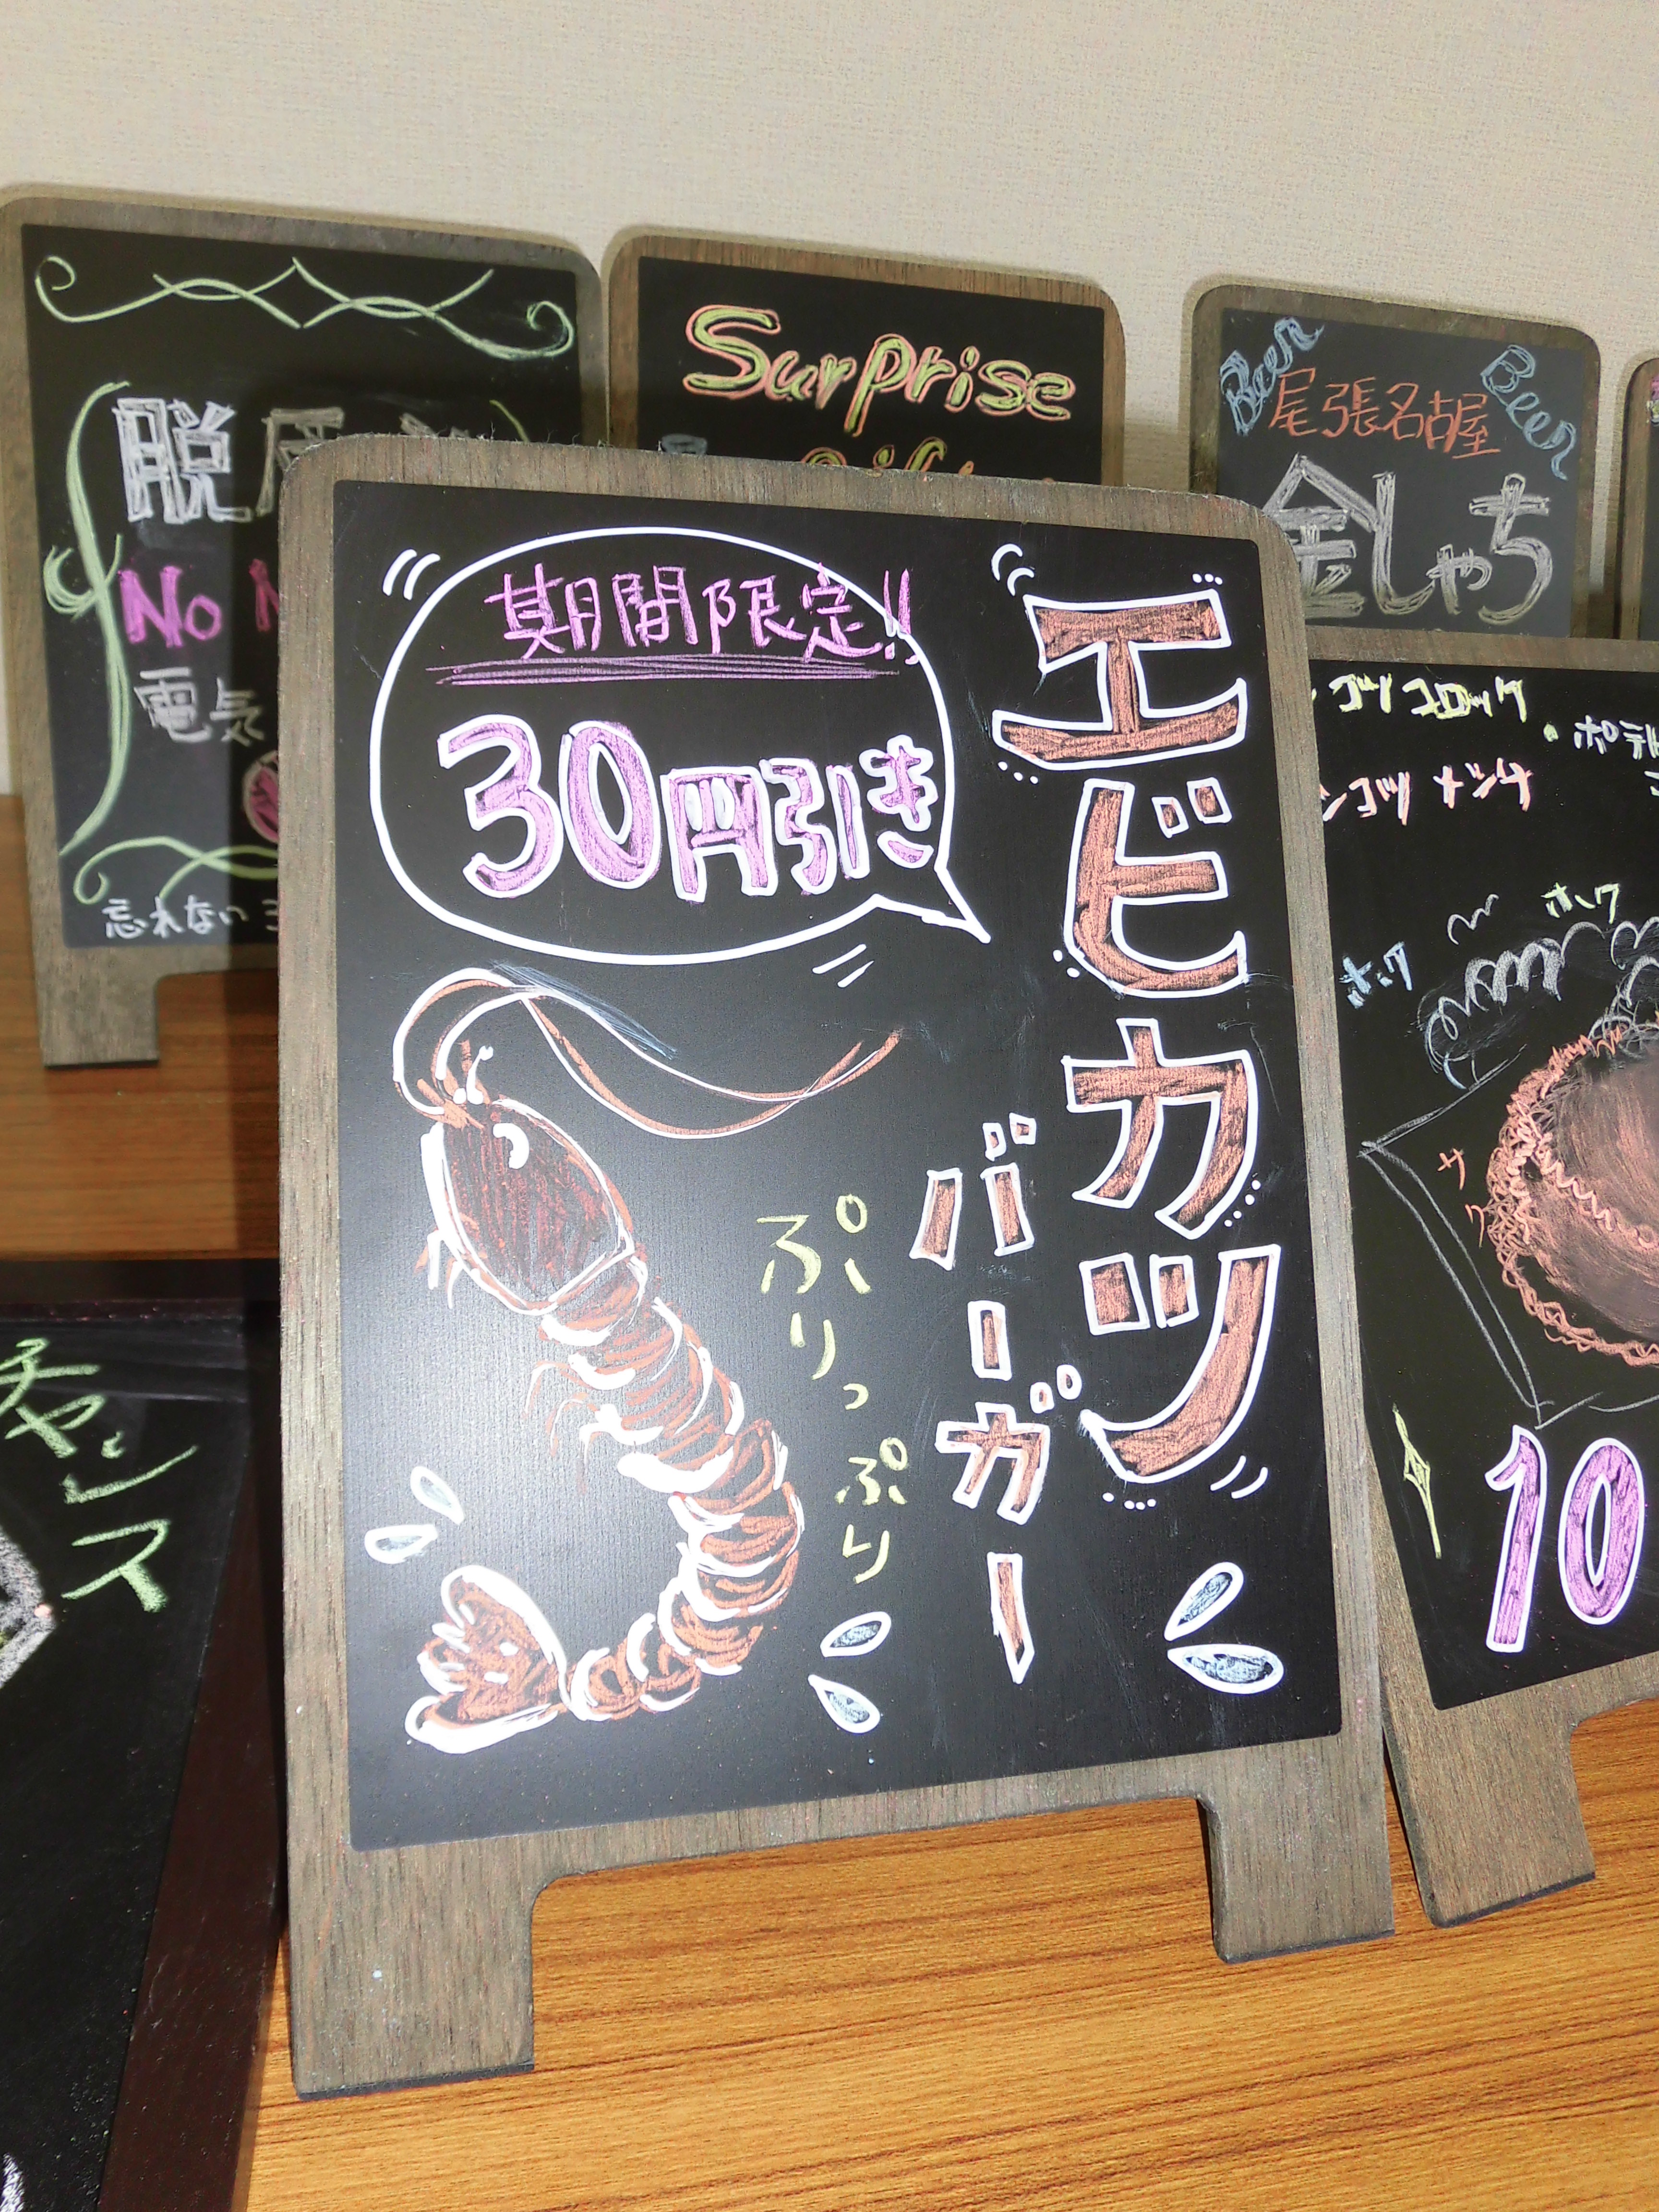 期間限定!!
30円引き
エビカツ
バーガー
ぷりっぷり
脱
No
電気
忘れない
Surprise
Beer
Beer
尾張名古屋
金しゃち
コロック
ホック
ホック
サク
10
チャンス